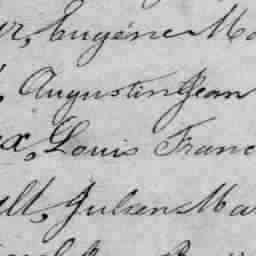 Eugéne Ma
Augustin Jean
Louis Franc
Julien Ma